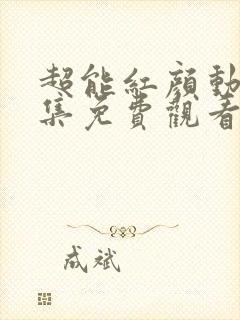 超能紅顏動
集免費觀看
成斌